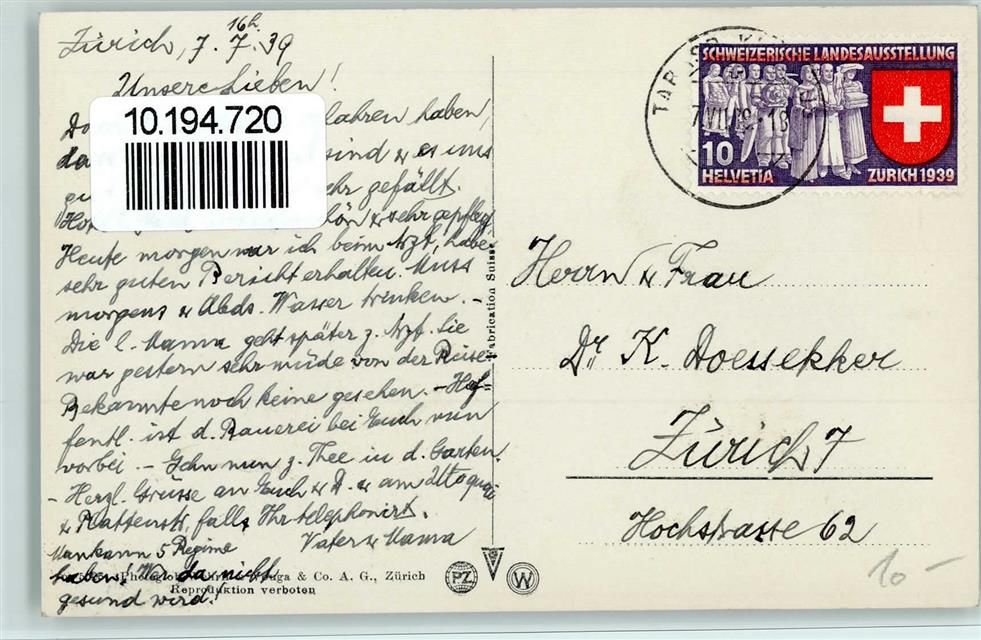 16h.
Zürich, 7. 7. 39
Unsere Lieben!
10.194.720
fahren haben,
sind & es uns
sehr gefällt.
schön & sehr gepflegt
Heute morgen war ich beim Arzt, habe
sehr guten Bericht erhalten. Muss
morgens & Abds. Wasser trinken. –
Die l. Mama geht später z. Arzt. Sie
war gestern sehr müde von der Reise.
Bekannte noch keine gesehen. – Hof
fentl. ist d. Bauerei bei Euch nun
vorbei. – Gehn nun z. Thee in d. Garten.
– Herzl. Grüsse an Euch & D. & am Utoquai
& Plattenstr, falls Ihr telephonirt.
Vater & Mama
Man kann 5 Regime
haben! Wer da nicht
gesund wird!
& Co. A. G., Zürich
Reproduktion verboten
Fabrication Suisse
PZ
W
SCHWEIZERISCHE LANDESAUSSTELLUNG
10
HELVETIA
ZURICH 1939
TARASP
Herrn & Frau
Dr. K. Doessekker
Zürich 7
Hochstrasse 62
10 –